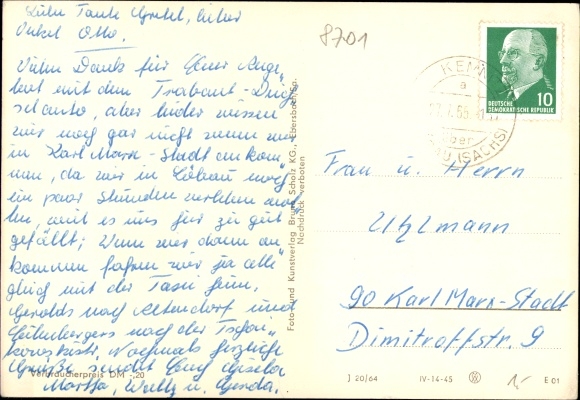 Liebe Tante Gretel, lieber
Onkel Otto.
Vielen Dank für Euer Ange-
bot mit dem Trabant-
auto, aber leider wissen
wir noch gar nicht wenn wir
in Karl Marx-Stadt ankom-
men, da wir in Löbau noch
ein paar Stunden
weil es uns hier zu gut
gefällt; Wenn wir dann an
kommen fahren wir ja alle
gleich mit der Taxi heim,
Gerolds nach Altendorf und
nach der
Nochmals herzliche
Grüße sendet Euch Gisela
Martha, u. Gerda.
Verbraucherpreis DM -,20
Foto- und Kunstverlag Bruno Scholz KG., Ebersbach/Sa.
Nachdruck verboten
8701
KEMN
a
über
(SACHS)
DEUTSCHE
DEMOKRATISCHE REPUBLIK
10
Frau u. Herrn
Uhlmann
90 Karl Marx-Stadt
Dimitroffstr. 9
J 20/64 IV-14-45 E 01